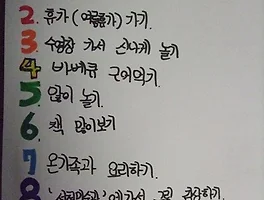 2. 휴가(여름휴가) 가기.
3. 수영장 가서 신나게 놀기
4 바베큐 구어먹기.
5 많이 놀기.
6. 책 많이보기
7 온가족과 요리하기.
8 에가서